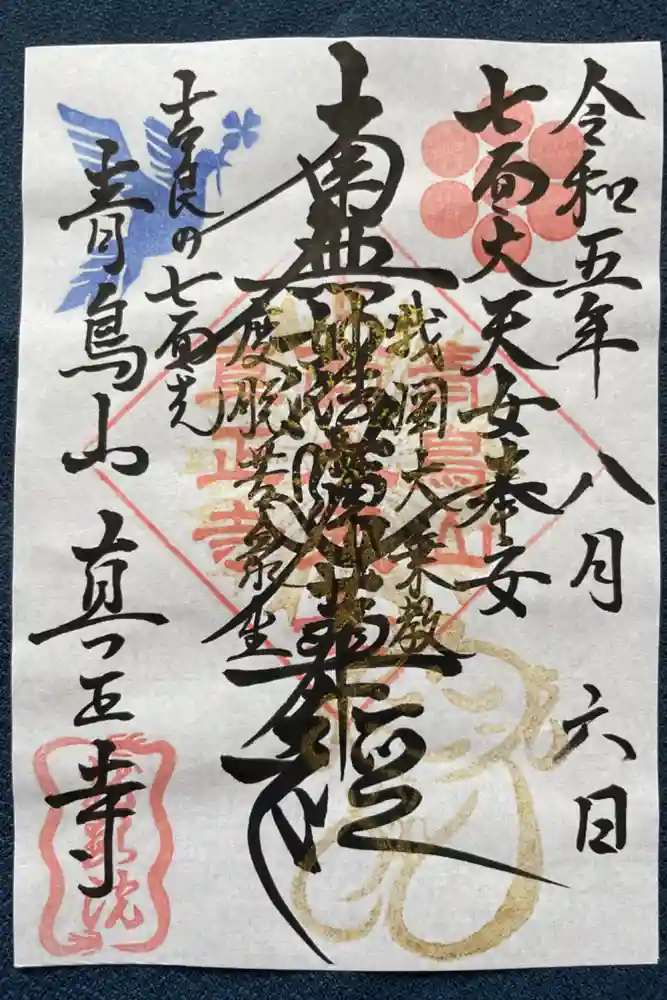 令和五年 八月 六日
七面大天女奉安
我闡大乗教
南無妙法蓮華経
度脱苦衆生
吉良の七面さん
青鳥山 真正寺
青鳥山
真正寺